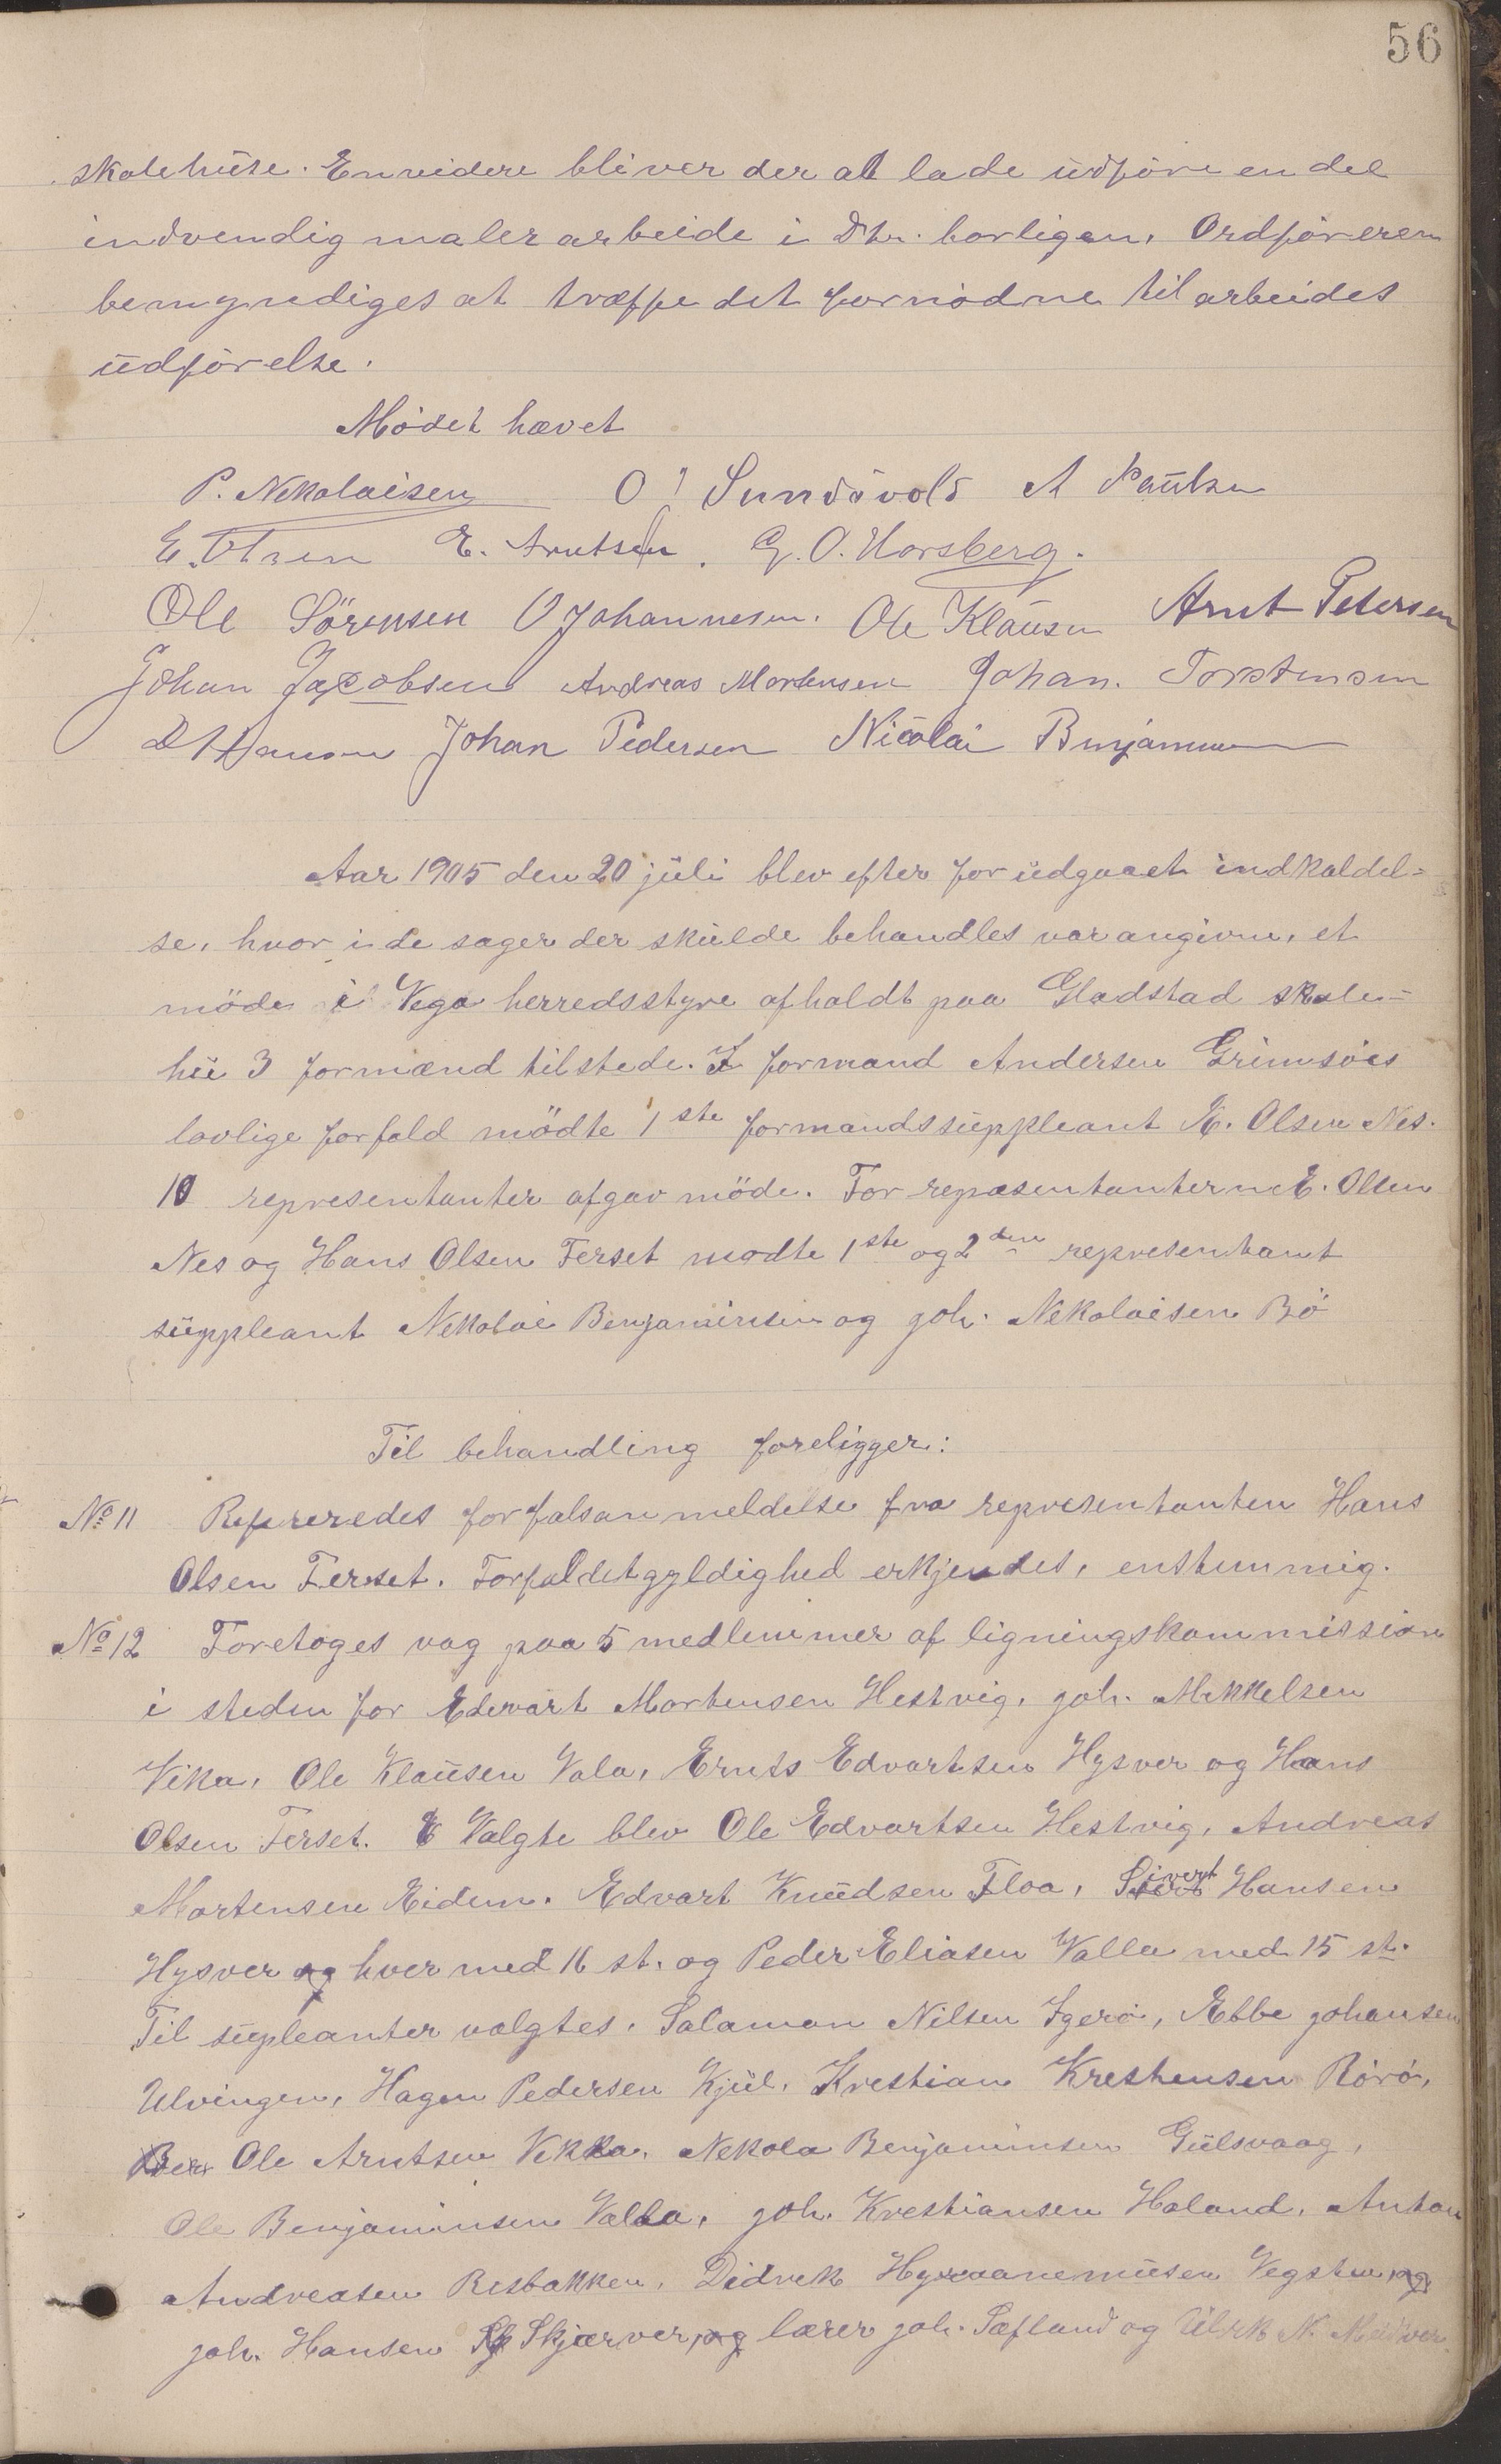 56
skolehuse. Envidere bliver der at lade udføre en del
indvendig malerarbeide i Dhr. borligen. Ordføreren
bemyndiges at træffe det fornødne til arbeides
udførelse.
Mødet hævet
P. Nekolaisen O J Sundsvold A Paulsen
E. Olsen E. Arntsen. G. O. Horsberg.
Ole Sörensen O Johannesen. Ole Klausen Arnt Petersen
Johan Jacobsen Andreas Mortensen Johan. Torstensen
D Hanson Johan Pedersen Nicolai Benjaminsen
Aar 1905 den 20 juli blev efter forudgaaet indkaldel-
se, hvor i de sager der skulde behandles var angivne, et
möde i Vega herredsstyre afholdt paa Gladstad skole-
hu 3 formænd tilstede. I formand Andersen Grimsöes
lovlige forfald mödte 1ste formandssuppleant E. Olsen Nes.
10 representanter afgav möde. For repæsentanterne E. Olsen
Nes og Hans Olsen Ferset mødte 1ste og 2den representant
suppleant Nekolai Benjaminsen og joh. Nekolaisen Bö
Til behandling foreligger:
No 11 Refereredes forfalsanmeldelse fra representanten Hans
Olsen Ferset. Forfaldetgyldighed erkjendes, enstemmig.
No 12 Foretoges vag paa 5 medlemmer af ligningskommission
i steden for Edevart Mortensen Hestvig, joh. Mikkelsen
Vika, Ole Klausen Vala, Ernts Edvartsen Hysver og Hans
Olsen Ferset. Valgte blev Ole Edvartsen Hestvig, Andreas
Mortensen Eidem. Edvart Knudsen Floa, Sivert Hansen
Hysver og hver med 16 st. og Peder Eliasen Valla med 15 st.
Til supleanter valgtes. Salamon Nilsen Igerö, Ebbe johansen
Ulvingen, Hagen Pedersen Kjul, Krestian Krestensen Rörö,
Ben Ole Arntsen Vikka. Nekola Benjaminsen Gulsvaag,
Ole Benjaminsen Valla, joh. Krestiansen Holand, Anton
Andreasen Resbakken, Didrek Hyroanemusen Vegsten og
joh. Hansen Skjærver, og lærer joh. Sæfland og Ulrk N. Meidver